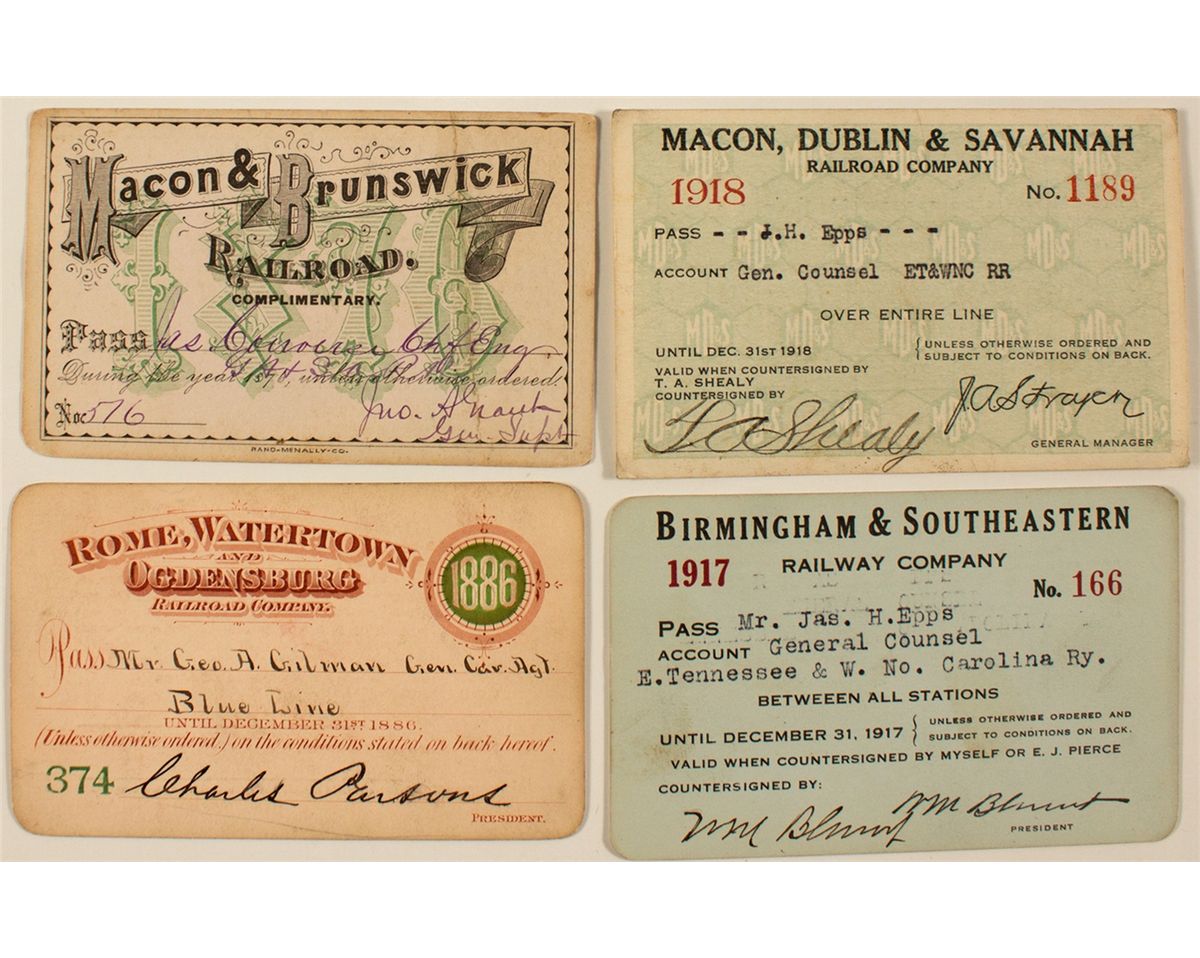 Macon & Brunswick
Railroad.
COMPLIMENTARY.
Pass Jas Cht Eng.
During the year 1876, unless otherwise ordered.
No 576 Jno. A
Gen Supt
RAND-McNALLY-CO.
MACON, DUBLIN & SAVANNAH
RAILROAD COMPANY
1918 No. 1189
PASS - - J.H. Epps - - -
ACCOUNT Gen. Counsel ET&WNC RR
OVER ENTIRE LINE
UNTIL DEC. 31ST 1918 { UNLESS OTHERWISE ORDERED AND
SUBJECT TO CONDITIONS ON BACK.
VALID WHEN COUNTERSIGNED BY
T. A. SHEALY
COUNTERSIGNED BY
T A Shealy
GENERAL MANAGER
ROME, WATERTOWN
AND
OGDENSBURG
RAILROAD COMPANY.
1886
Pass Mr Geo. A. Gilman Gen. Cav. Agt.
Blue Line
UNTIL DECEMBER 31ST 1886.
(Unless otherwise ordered.) on the conditions stated on back hereof.
374 Charles Parsons
PRESIDENT.
BIRMINGHAM & SOUTHEASTERN
RAILWAY COMPANY
1917 No. 166
PASS Mr. Jas. H. Epps
ACCOUNT General Counsel
E. Tennessee & W. No. Carolina Ry.
BETWEEEN ALL STATIONS
UNTIL DECEMBER 31, 1917 { UNLESS OTHERWISE ORDERED AND
SUBJECT TO CONDITIONS ON BACK.
VALID WHEN COUNTERSIGNED BY MYSELF OR E. J. PIERCE
COUNTERSIGNED BY:
WM Blount WM Blount
PRESIDENT